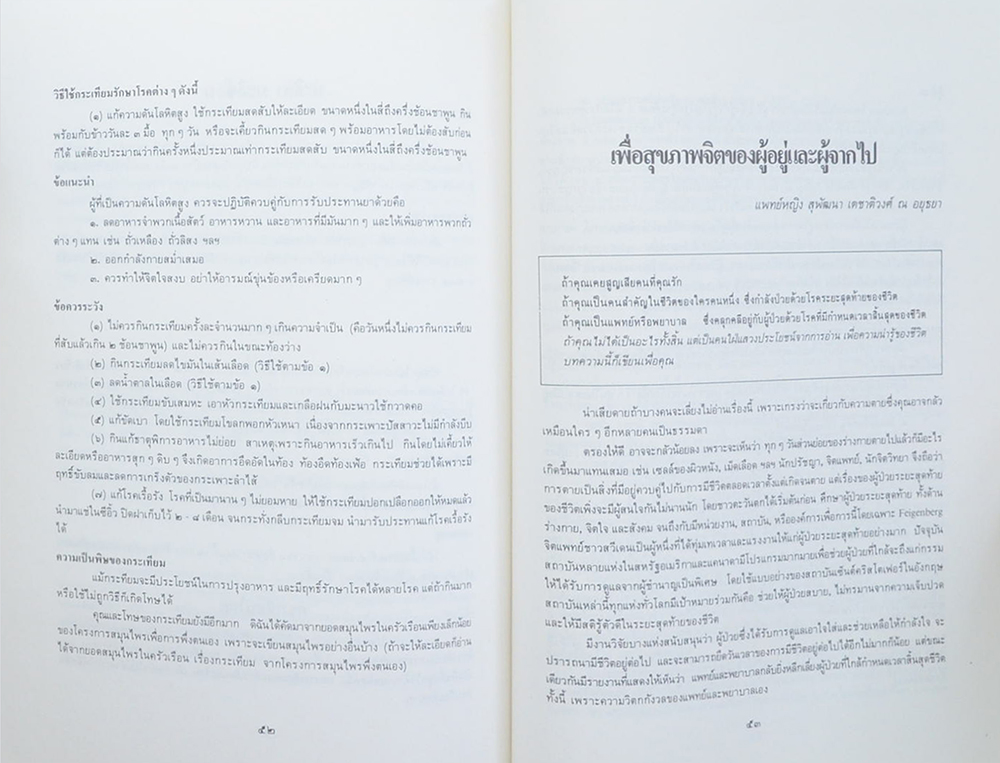 วิธีใช้กระเทียมรักษาโรคต่าง ๆ ดังนี้
(๑) แก้ความดันโลหิตสูง ใช้กระเทียมสดสับให้ละเอียด ขนาดหนึ่งในสี่ถึงครึ่งช้อนชาพูน กิน
พร้อมกับข้าววันละ ๓ มื้อ ทุก ๆ วัน หรือจะเคี้ยวกินกระเทียมสด ๆ พร้อมอาหารโดยไม่ต้องสับก่อน
ก็ได้ แต่ต้องประมาณว่ากินครั้งหนึ่งประมาณเท่ากระเทียมสดสับ ขนาดหนึ่งในสี่ถึงครึ่งช้อนชาพูน
ข้อแนะนำ
ผู้ที่เป็นความดันโลหิตสูง ควรจะปฏิบัติควบคู่กับการรับประทานยาด้วยคือ
๑. ลดอาหารจำพวกเนื้อสัตว์ อาหารหวาน และอาหารที่มีมันมาก ๆ และให้เพิ่มอาหารพวกถั่ว
ต่าง ๆ แทน เช่น ถั่วเหลือง ถั่วลิสง ฯลฯ
๒. ออกกำลังกายสม่ำเสมอ
๓. ควรทำให้จิตใจสงบ อย่าให้อารมณ์ขุ่นข้องหรือเครียดมาก ๆ
ข้อควรระวัง
(๑) ไม่ควรกินกระเทียมครั้งละจำนวนมาก ๆ เกินความจำเป็น (คือวันหนึ่งไม่ควรกินกระเทียม
ที่สับแล้วเกิน ๒ ช้อนชาพูน) และไม่ควรกินในขณะท้องว่าง
(๒) กินกระเทียมลดไขมันในเส้นเลือด (วิธีใช้ตามข้อ ๑)
(๓) ลดน้ำตาลในเลือด (วิธีใช้ตามข้อ ๑)
(๔) ใช้กระเทียมขับเสมหะ เอาหัวกระเทียมและเกลือฝนกับมะนาวใช้กวาดคอ
(๕) แก้ขัดเบา โดยใช้กระเทียมโขลกพอกหัวเหน่า เนื่องจากกระเพาะปัสสาวะไม่มีกำลังบีบ
(๖) กินแก้ธาตุพิการอาหารไม่ย่อย สาเหตุเพราะกินอาหารเร็วเกินไป กินโดยไม่เคี้ยวให้
ละเอียดหรืออาหารสุก ๆ ดิบ ๆ จึงเกิดอาการอืดอัดในท้อง ท้องอืดท้องเฟ้อ กระเทียมช่วยได้เพราะมี
ฤทธิ์ขับลมและลดการเกร็งตัวของกระเพาะลำไส้
(๗) แก้โรคเรื้อรัง โรคที่เป็นมานาน ๆ ไม่ยอมหาย ให้ใช้กระเทียมปอกเปลือกออกให้หมดแล้ว
นำมาแช่ในซีอิ๊ว ปิดฝาเก็บไว้ ๒ - ๔ เดือน จนกระทั่งกลีบกระเทียมจม นำมารับประทานแก้โรคเรื้อรัง
ได้
ความเป็นพิษของกระเทียม
แม้กระเทียมจะมีประโยชน์ในการปรุงอาหาร และมีฤทธิ์รักษาโรคได้หลายโรค แต่ถ้ากินมาก
หรือใช้ไม่ถูกวิธีก็เกิดโทษได้
คุณและโทษของกระเทียมยังมีอีกมาก ดิฉันได้คัดมาจากยอดสมุนไพรในครัวเรือนเพียงเล็กน้อย
ของโครงการสมุนไพรเพื่อการพึ่งตนเอง เพราะจะเขียนสมุนไพรอย่างอื่นบ้าง (ถ้าจะให้ละเอียดก็อ่าน
ได้จากยอดสมุนไพรในครัวเรือน เรื่องกระเทียม จากโครงการสมุนไพรพึ่งตนเอง)
๕๒
เพื่อสุขภาพจิตของผู้อยู่และผู้จากไป
แพทย์หญิง สุพัฒนา เดชาติวงศ์ ณ อยุธยา
ถ้าคุณเคยสูญเสียคนที่คุณรัก
ถ้าคุณเป็นคนสำคัญในชีวิตของใครคนหนึ่ง ซึ่งกำลังป่วยด้วยโรคระยะสุดท้ายของชีวิต
ถ้าคุณเป็นแพทย์หรือพยาบาล ซึ่งคลุกคลีอยู่กับผู้ป่วยด้วยโรคที่มีกำหนดเวลาสิ้นสุดของชีวิต
ถ้าคุณไม่ได้เป็นอะไรทั้งสิ้น แต่เป็นคนใฝ่แสวงประโยชน์จากการอ่าน เพื่อความน่ารู้ของชีวิต
บทความนี้ก็เขียนเพื่อคุณ
น่าเสียดายถ้าบางคนจะเลี่ยงไม่อ่านเรื่องนี้ เพราะเกรงว่าจะเกี่ยวกับความตายซึ่งคุณอาจกลัว
เหมือนใคร ๆ อีกหลายคนเป็นธรรมดา
ตรองให้ดี อาจจะกลัวน้อยลง เพราะจะเห็นว่า ทุก ๆ วันส่วนย่อยของร่างกายตายไปแล้วก็มีอะไร
เกิดขึ้นมาแทนเสมอ เช่น เซลล์ของผิวหนัง, เม็ดเลือด ฯลฯ นักปรัชญา, จิตแพทย์, นักจิตวิทยา จึงถือว่า
การตายเป็นสิ่งที่มีอยู่ควบคู่ไปกับการมีชีวิตตลอดเวลาตั้งแต่เกิดจนตาย แต่เรื่องของผู้ป่วยระยะสุดท้าย
ของชีวิตเพิ่งจะมีผู้สนใจกันไม่นานนัก โดยชาวตะวันตกได้เริ่มต้นก่อน ศึกษาผู้ป่วยระยะสุดท้าย ทั้งด้าน
ร่างกาย, จิตใจ และสังคม จนถึงกับมีหน่วยงาน, สถาบัน, หรือองค์การเพื่อการนี้โดยเฉพาะ Feigenberg
จิตแพทย์ชาวสวีเดนเป็นผู้หนึ่งที่ได้ทุ่มเทเวลาและแรงงานให้แก่ผู้ป่วยระยะสุดท้ายอย่างมาก ปัจจุบัน
สถาบันหลายแห่งในสหรัฐอเมริกาและแคนาดามีโปรแกรมมากมายเพื่อช่วยผู้ป่วยที่ใกล้จะถึงแก่กรรม
ให้ได้รับการดูแลจากผู้ชำนาญเป็นพิเศษ โดยใช้แบบอย่างของสถาบันเซ็นต์คริสโตเฟอร์ในอังกฤษ
สถาบันเหล่านี้ทุกแห่งทั่วโลกมีเป้าหมายร่วมกันคือ ช่วยให้ผู้ป่วยสบาย, ไม่ทรมานจากความเจ็บปวด
และให้มีสติรู้ตัวดีในระยะสุดท้ายของชีวิต
มีงานวิจัยบางแห่งสนับสนุนว่า ผู้ป่วยซึ่งได้รับการดูแลเอาใจใส่และช่วยเหลือให้กำลังใจ จะ
ปรารถนามีชีวิตอยู่ต่อไป และจะสามารถยืดวันเวลาของการมีชีวิตอยู่ต่อไปได้อีกไม่มากก็น้อย แต่ขณะ
เดียวกันมีรายงานที่แสดงให้เห็นว่า แพทย์และพยาบาลกลับยิ่งหลีกเลี่ยงผู้ป่วยที่ใกล้กำหนดเวลาสิ้นสุดชีวิต
ทั้งนี้ เพราะความวิตกกังวลของแพทย์และพยาบาลเอง
๕๓